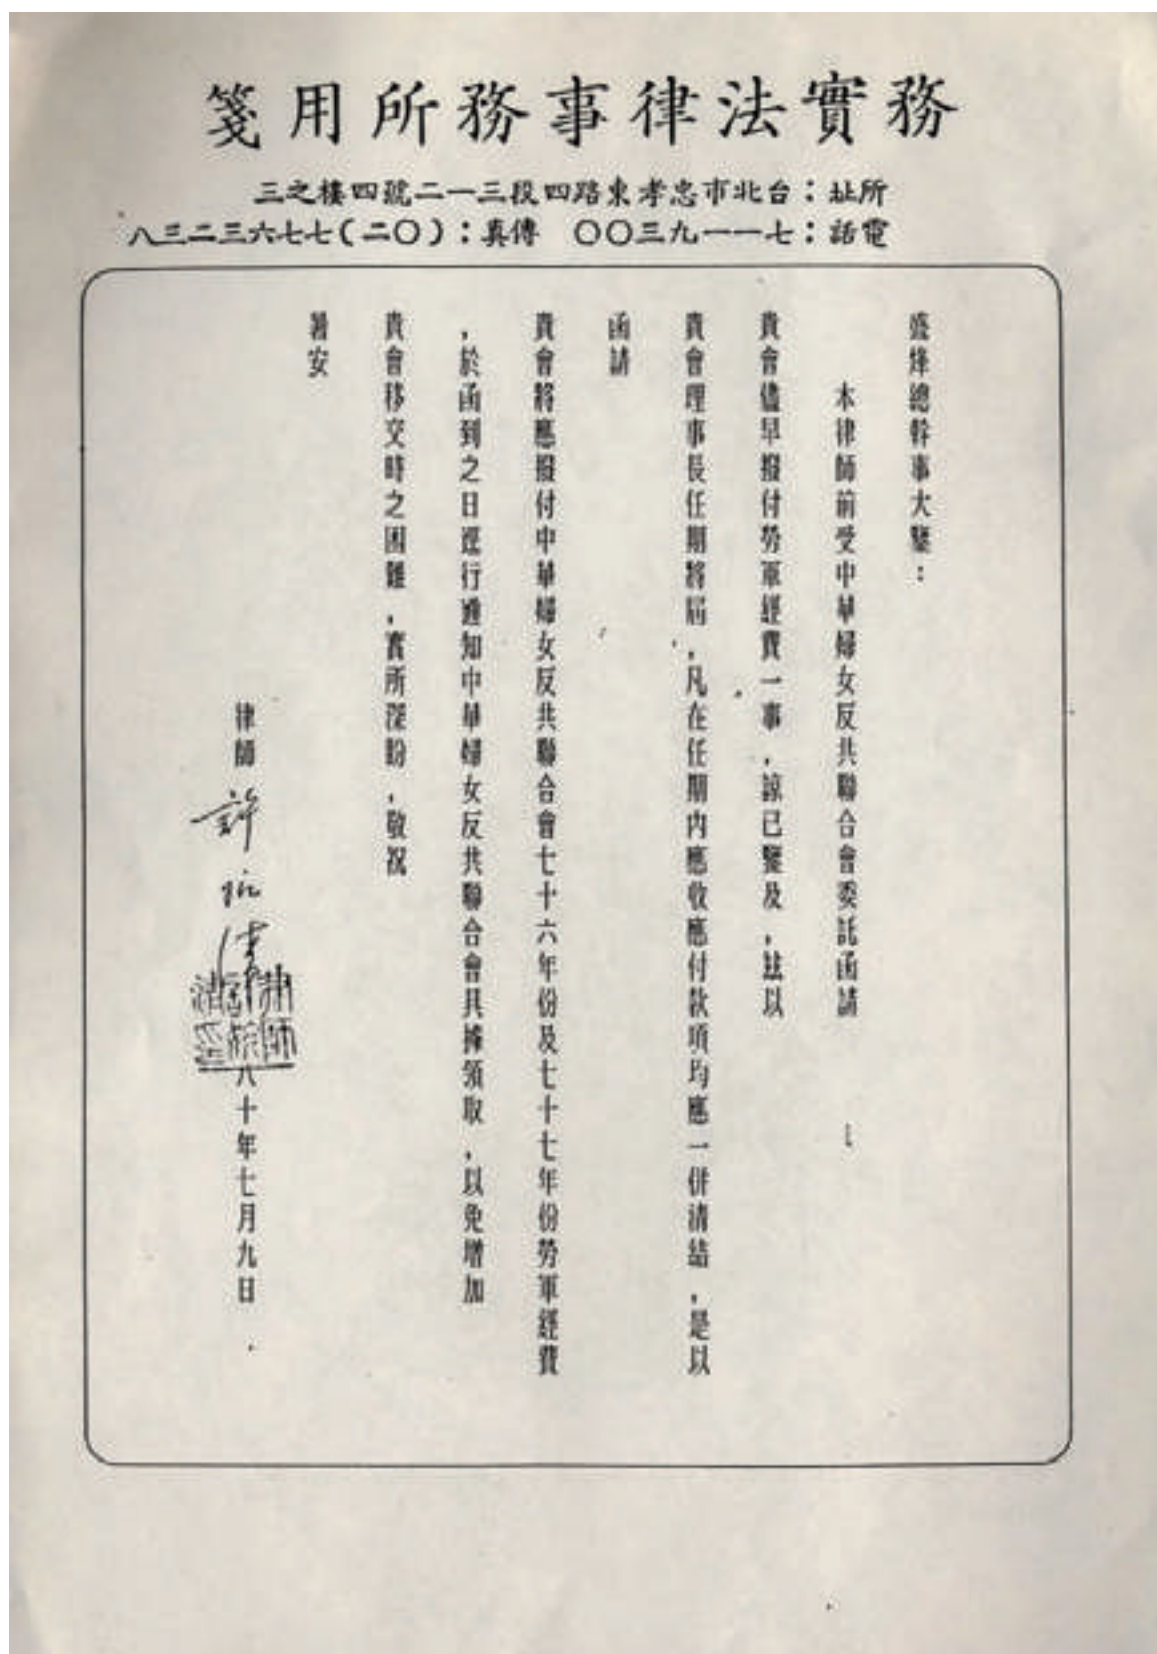 務實法律事務所用箋
所址：台北市忠孝東路四段三一二號四樓之三
電話：七一一一九三〇〇　傳真：（〇二）七七六三二三八
盛烽總幹事大鑒：
本律師前受中華婦女反共聯合會委託函請
貴會儘早撥付勞軍經費一事，諒已鑒及，玆以
貴會理事長任期將屆，凡在任期內應收應付款項均應一併清結，是以
函請
貴會將應撥付中華婦女反共聯合會七十六年份及七十七年份勞軍經費
，於函到之日逕行通知中華婦女反共聯合會具據領取，以免增加
貴會移交時之困難，實所深盼，敬祝
暑安
律師 許
八十年七月九日